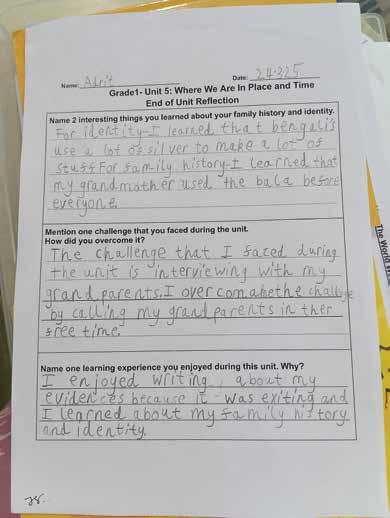 Name: Adrit Date: 24.3.25
Grade1- Unit 5: Where We Are In Place and Time
End of Unit Reflection
Name 2 interesting things you learned about your family history and identity.
For identity-I learned that bengali's
use a lot of silver to make a lot of
stuff For family history-I learned that
my grandmother used the bala before
everyone.
Mention one challenge that you faced during the unit.
How did you overcome it?
The challenge that I faced during
the unit is interviewing with my
grand parents. I over came the challenge
by calling my grand parents in ther
free time.
Name one learning experience you enjoyed during this unit. Why?
I enjoyed writing, about my
evidences because it was exiting and
I learned about my family history
and identity.
The World